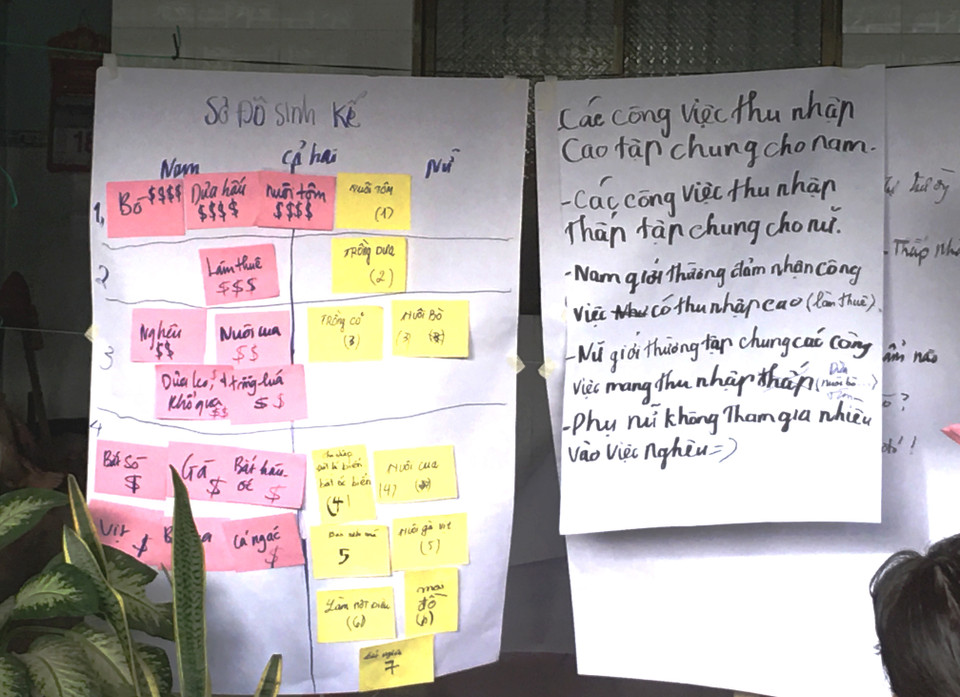 Sơ Đồ sinh kế
Nam cả hai Nữ
1.
Bò $$$$
Dưa hấu
$$$$
Nuôi tôm
$$$$
NUÔI TÔM
(1)
2
Làm thuê
$$$
TRỒNG DƯA
(2)
3
Nghêu
$$
Nuôi cua
$$
TRỒNG CỎ
(3)
NUÔI BÒ
(3)
Dưa leo,
khổ qua
$$
trồng lúa
$$
4
Bắt Sò
$
Gà
$
Bắt hàu
ốc $
(4)
NUÔI CUA
(4)
Vịt $
Cá ngác
$
5
Nuôi gà vịt
(5)
(6)
(6)
7
Các công việc thu nhập
Cao tập chung cho nam.
- Các công việc thu nhập
Thấp tập chung cho nữ.
- Nam giới thường đảm nhận công
việc có thu nhập cao (làm thuê).
- Nữ giới thường tập chung các công
việc mang thu nhập thấp
- Phụ nữ không Tham gia nhiều
vào việc Nghêu =>
- Thấp